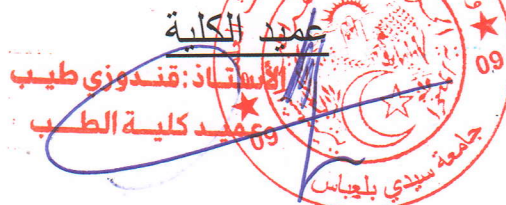 عميد الكلية
الأستاذ: قندوزي طيب
عميد كلية الطب
09
09
جامعة سيدي بلعباس